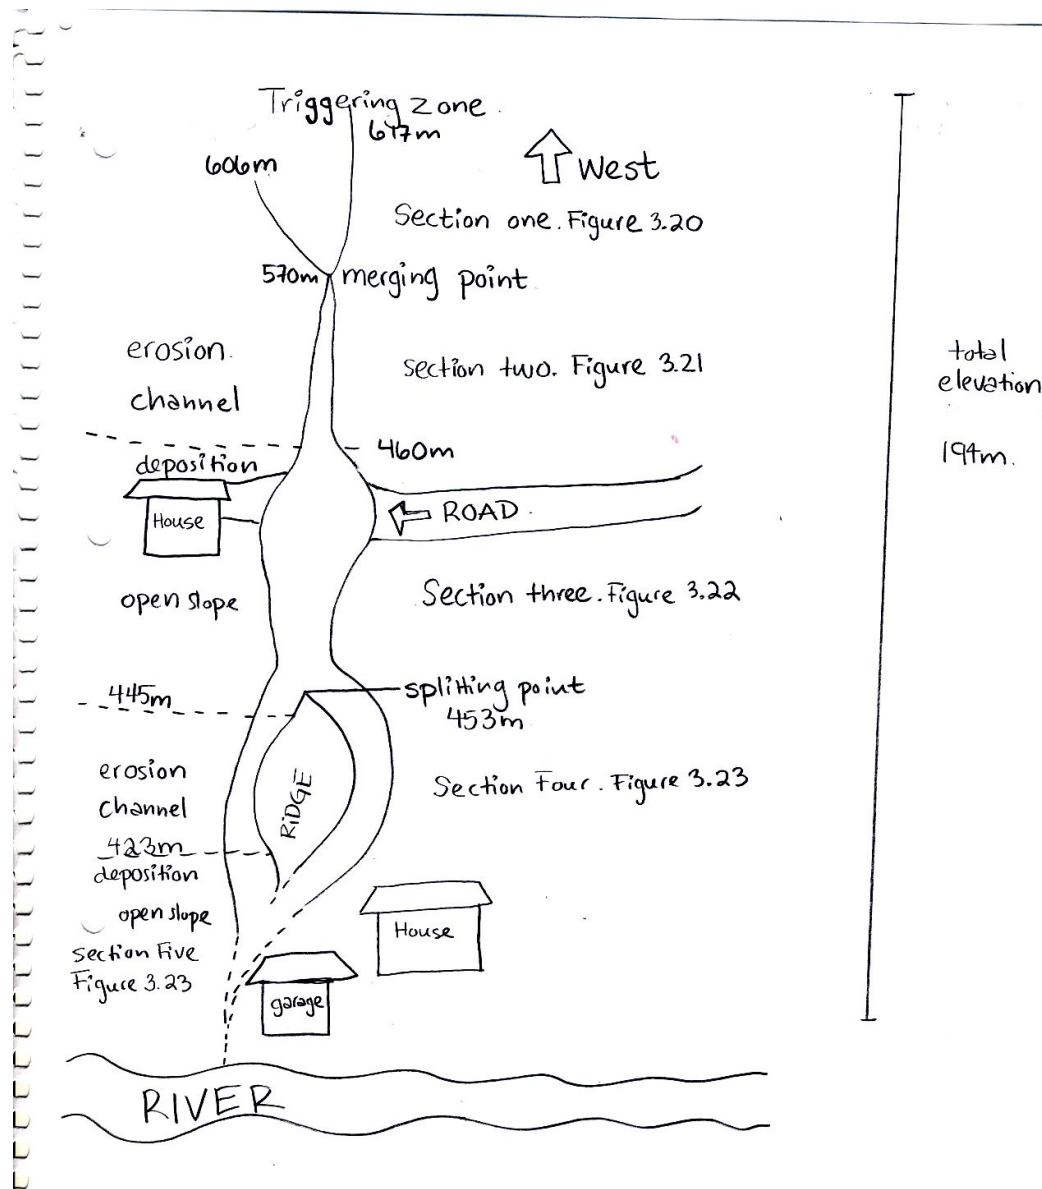 Triggering zone.
617m
606m
West
Section one. Figure 3.20
570m merging point
erosion.
channel
section two. Figure 3.21
total
elevation
194m.
460m
deposition
House
ROAD.
open slope
Section three. Figure 3.22
445m
splitting point
453m
erosion
channel
RIDGE
Section Four. Figure 3.23
423m
deposition
open slope
House
section Five
Figure 3.23
garage
RIVER